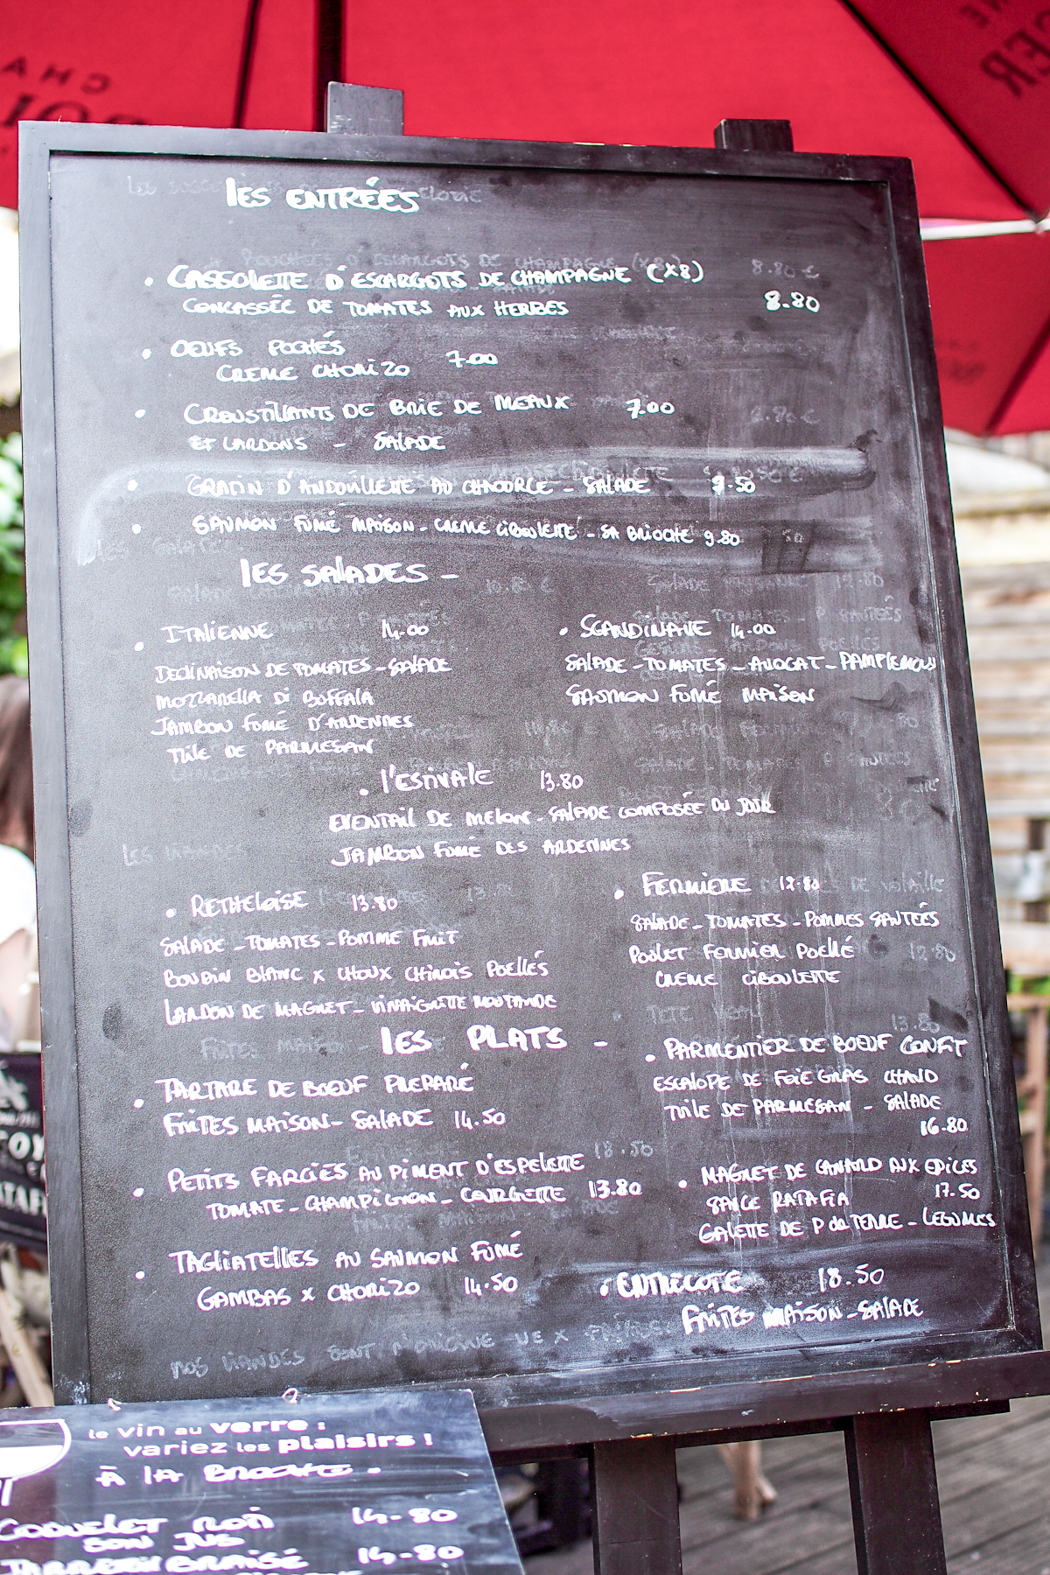 les ENTRÉES
• CASSOLETTE D'ESCARGOTS DE CHAMPAGNE (X8)
CONCASSÉE DE TOMATES AUX HERBES 8.80
• OEUFS POCHÉS
CREME CHORIZO 7.00
• CROUSTILLANTS DE BRIE DE MEAUX 7.00
ET LARDONS - SALADE
• GRATIN D'ANDOUILLETTE AU CHAOURCE - SALADE 9.50
• SAUMON FUMÉ MAISON - CREME CIBOULETTE - SA BRIOCHE 9.80
les SALADES -
• ITALIENNE 14.00
DECLINAISON DE TOMATES - SALADE
MOZZARELLA DI BUFFALA
JAMBON FUMÉ D'ARDENNES
TUILE DE PARMESAN
• SCANDINAVE 14.00
SALADE - TOMATES - AVOCAT - PAMPLEMOU
SAUMON FUMÉ MAISON
• l'ESTIVALE 13.80
EVENTAIL DE MELON - SALADE COMPOSÉE DU JOUR
JAMBON FUMÉ DES ARDENNES
• RETHELOISE 13.80
SALADE - TOMATES - POMME FRUIT
BOUDIN BLANC X CHOUX CHINOIS POELLÉS
LARDON DE MAGRET - VINAIGRETTE MOUTARDE
• FERMIERE 12.80
SALADE - TOMATES - POMMES SAUTÉES
POULET FERMIER POELLÉ
CREME CIBOULETTE
les PLATS -
• TARTARE DE BOEUF PREPARÉ
FRITES MAISON - SALADE 14.50
• PETITS FARCIES AU PIMENT D'ESPELETTE
TOMATE - CHAMPIGNON - COURGETTE 13.80
• TAGLIATELLES AU SAUMON FUMÉ
GAMBAS X CHORIZO 14.50
• PARMENTIER DE BOEUF CONFIT
ESCALOPE DE FOIE GRAS CHAUD
TUILE DE PARMESAN - SALADE
16.80
• MAGRET DE CANARD AUX EPICES
SAUCE RATAFIA 17.50
GALETTE DE P de TERRE - LEGUMES
• ENTRECOTE 18.50
FRITES MAISON - SALADE
NOS VIANDES SONT D'ORIGINE UE X
le vin au verre :
variez les plaisirs !
À la BROCHE .
COQUELET ROTI 14-80
SON JUS
BRAISÉ 14-80